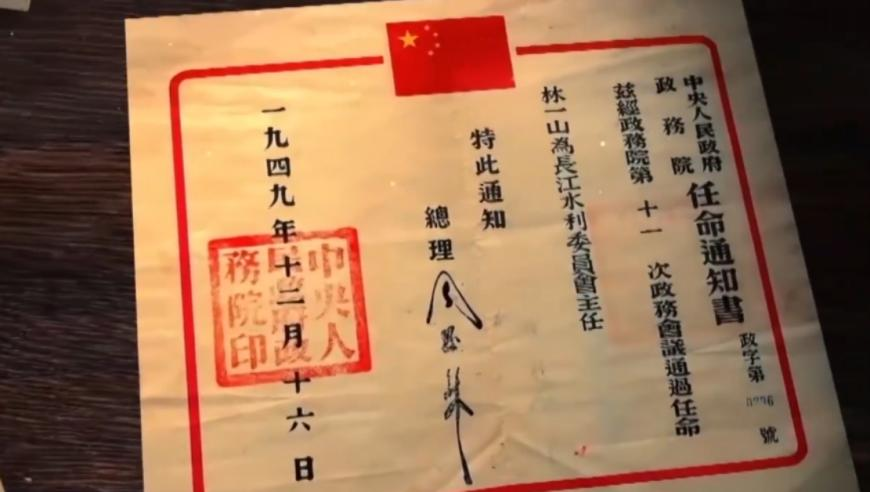 中央人民政府
政務院
任命通知書
政字第
號
茲經政務院第十一次政務會議通過任命
林一山為長江水利委員會主任
特此通知
總理
周恩來
一九四九年十二月十六日
中央人民政府政務院印